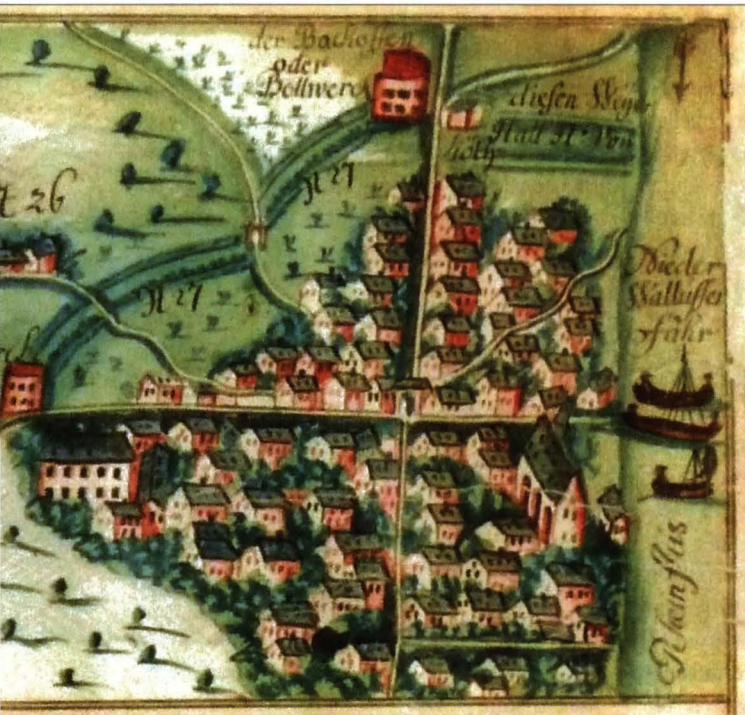 der Backoffen
oder
Bollwerck
diesen Weyer
Stad N: Von
N 27
N 26
N 27
Nieder
Walluffer
fahr
Rheinflus